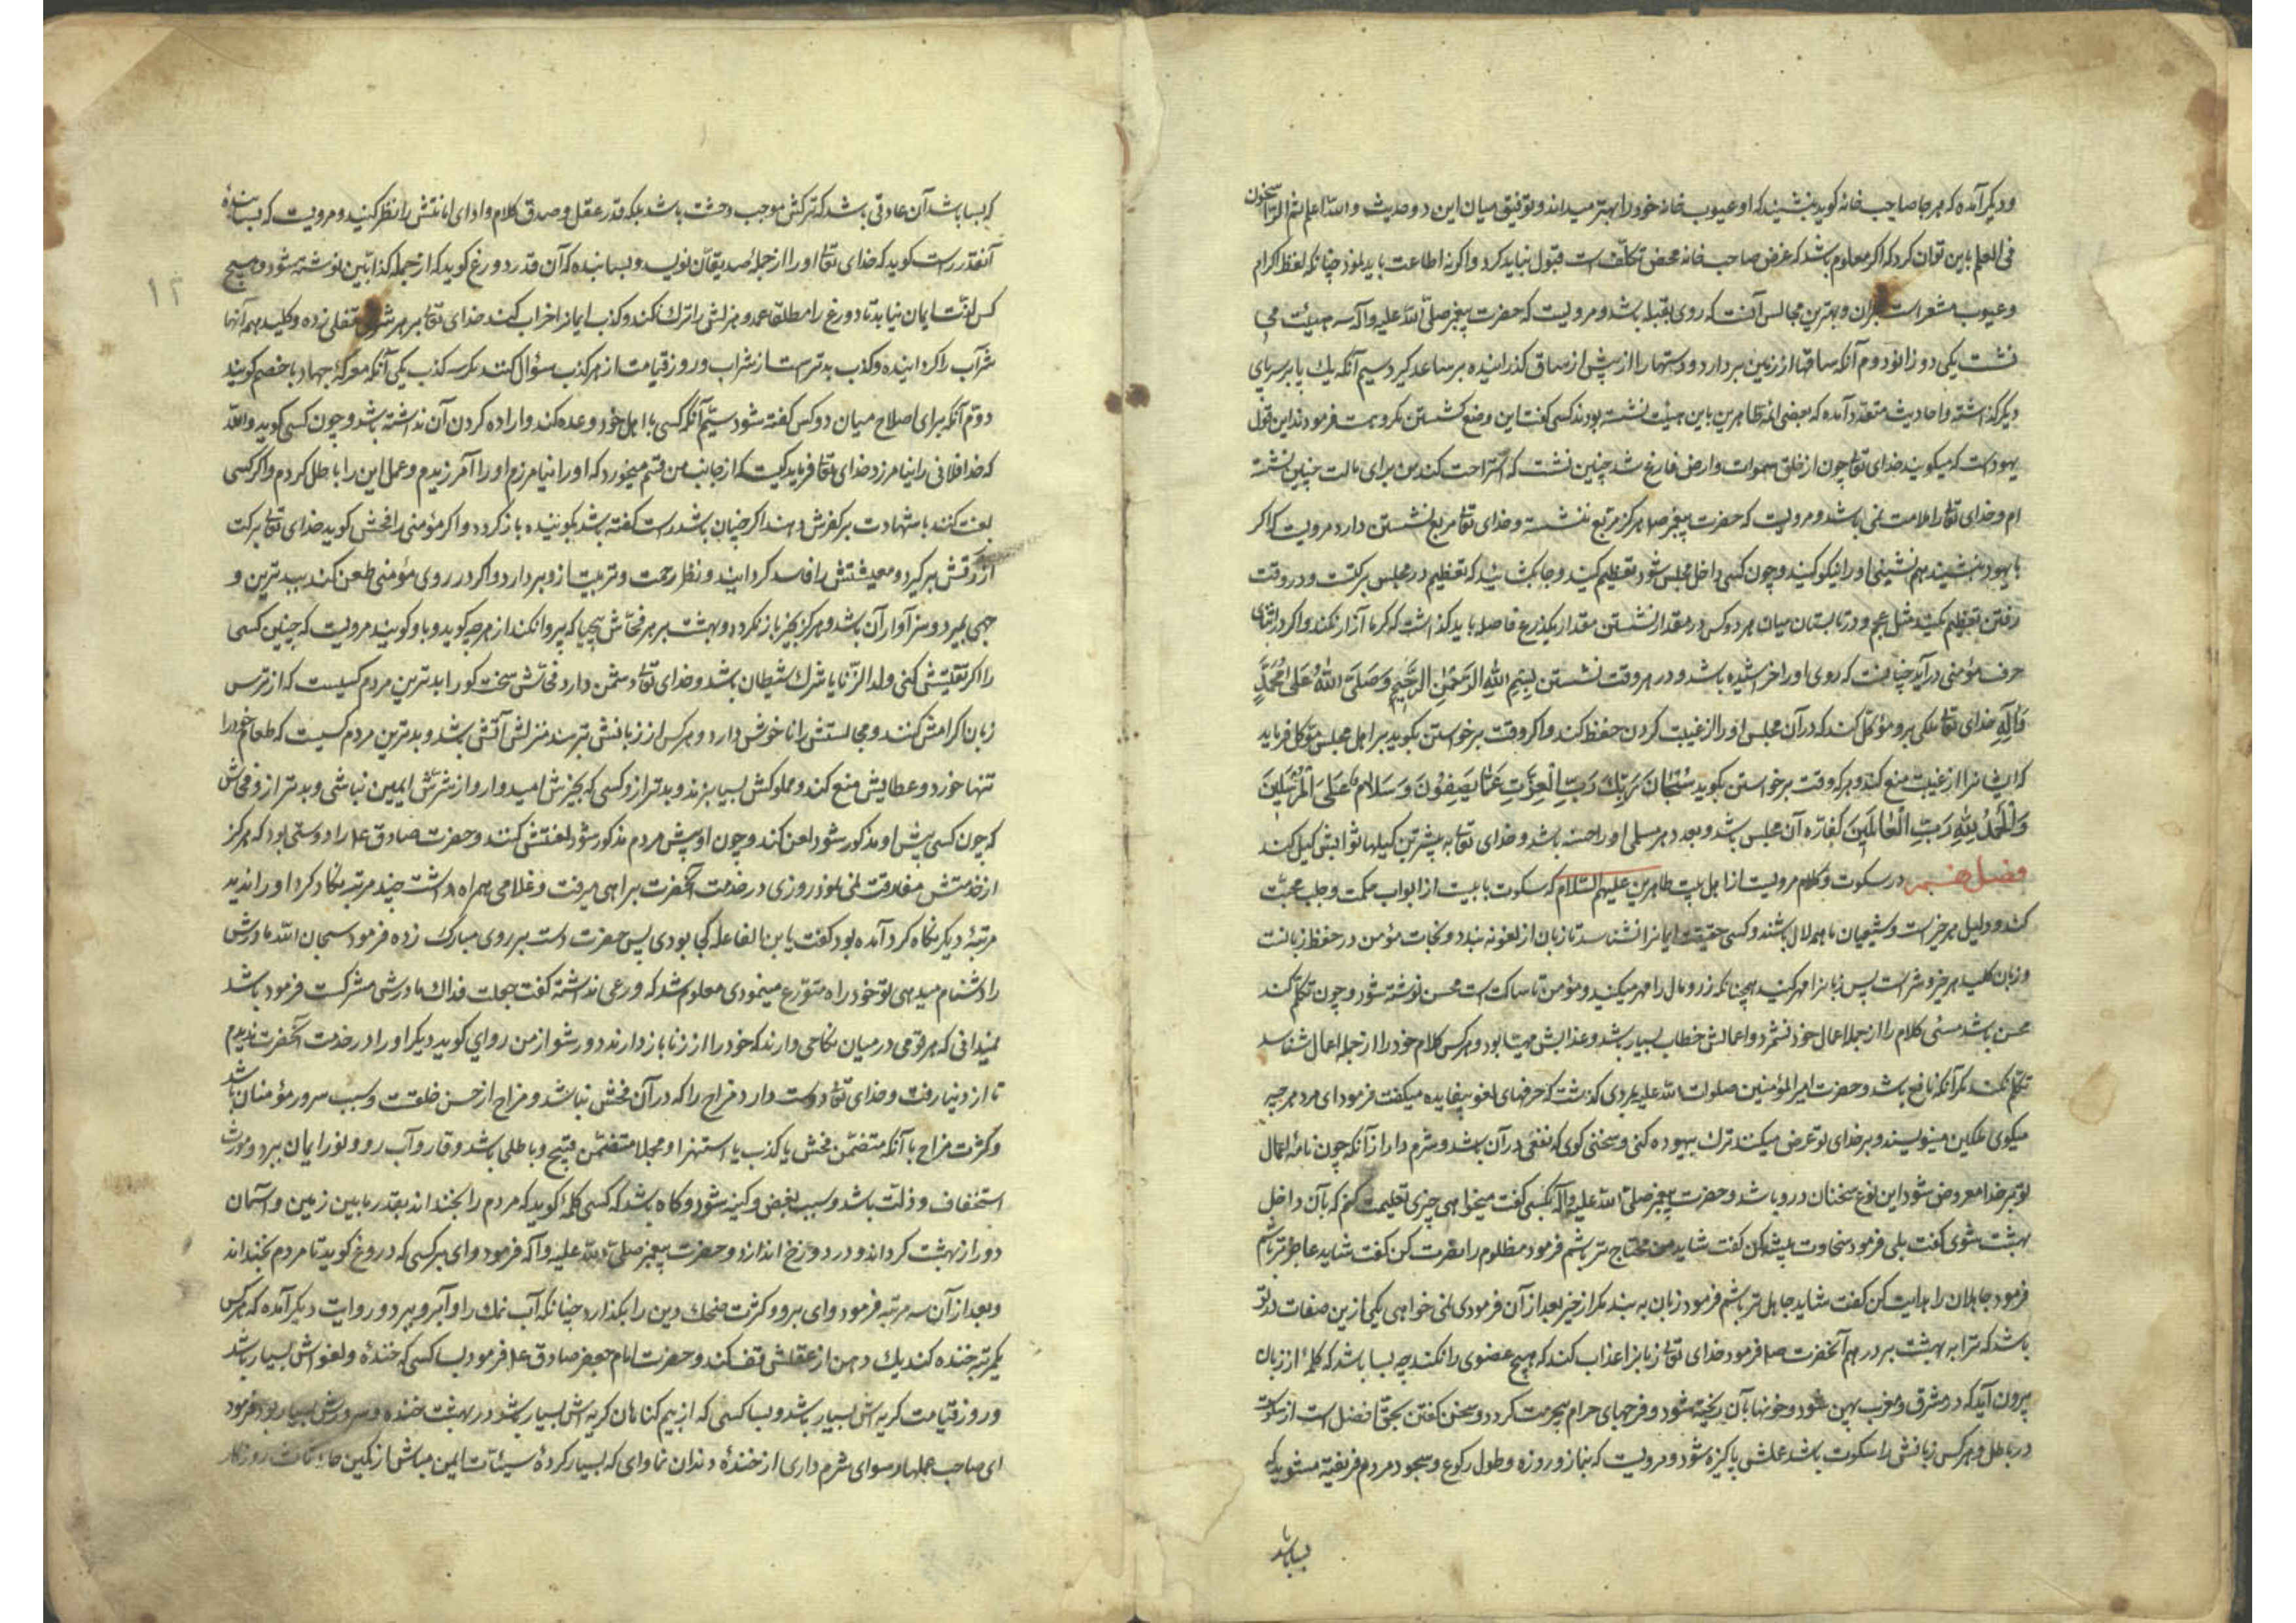 و دیگر آمده که هر جا صاحب خانه گوید بنشینید که او عیوب خانه خود را بهتر میداند و توفیق میان این دو حدیث والله اعلم ثم الراسخون
فی العلم باین توان کرد که اگر معلوم باشد که غرض صاحب خانه محض تکلّف است قبول نباید کرد و اگر نه اطاعت باید نمود چنانکه لفظ اکرام
و عیوب مشعر است بران و بهترین مجالس آنست که روی بقبله باشد و مرویست که حضرت پیغمبر صلّی الله علیه وآله سه هیئت می
نشست یکی دو زانو دوم آنکه ساقها از زمین بردارد و دستها را از پیش از ساق گذرانیده بر ساعد گیرد سیم آنکه یک پا بر سر پای
دیگر گذاشته و احادیث متعدّد آمده که بعضی ائمه طاهرین باین هیئت نشسته بودند کسی گفت این وضع نشستن مکروهست فرمودند این قول
یهود است که میگویند خدای تعالی چون از خلق سموات و ارض فارغ شد چنین نشست که استراحت کند من برای ملالت چنین نشسته
ام و خدای تعالی را ملامت نمی باشد و مرویست که حضرت پیغمبر ص هرگز مربّع ننشسته و خدای تعالی مربع نشستن دارد مرویست که اگر
با یهود بنشینید هم نشینی او را نیکو کنید و چون کسی داخل مجلس شود تعظیم کنید و جا بگشائید که تعظیم در مجلس برکتست و در وقت
رفتن تعظیم مکنید مثل عجم و در تابستان میان هر دو کس در مقدار نشستن مقدار یکذرع فاصله باید گذاشت که گرما آزار نکند و اگر در اثنای
حرف مؤمنی درآید چنانست که روی او را خراشیده باشد و در هر وقت نشستن بِسْمِ اللهِ الرَّحْمٰنِ الرَّحِيْمِ وَصَلَّى اللهُ عَلى مُحَمَّدٍ
وَآلِهِ خدای تعالی ملکی برو مؤکّل کند که در آن مجلس او را از غیبت کردن حفظ کند و اگر وقت برخواستن بگوید بر اهل مجلس مؤکل فرماید
که ایشانرا از غیبت منع کند و هر که وقت برخواستن بگوید سُبْحَانَ رَبِّكَ رَبِّ الْعِزَّةِ عَمَّا يَصِفُونَ وَسَلَامٌ عَلَى الْمُرْسَلِينَ
وَالْحَمْدُ لِلَّهِ رَبِّ الْعَالَمِينَ کفّاره آن مجلس باشد و بعدد هر مسلمی او را حسنه باشد و خدای تعالی به بیشترین کیلها ثوابش کیل کند
فصل در سکوت و کلام مرویست از اهل بیت طاهرین علیهم السّلام که سکوت بابیست از ابواب حکمت و جلب محبّت
کند و دلیل هر خیر است و شیعیان ما همه لال باشند و کسی حقیقت ایمانرا نشناسد تا زبان از لغو نه بندد و نجات مؤمن در حفظ زبانست
و زبان کلید هر خیر و شرّ است پس زبانرا مهر کنید همچنانکه زر و مال را مهر میکنید و مؤمن تا ساکت است محسن نوشته شود و چون تکلّم کند
محسن باشد مسئی کلام را از جمله اعمال خود نشمرد و اعمالش خطاب بسیار باشد و عذابش مهیّا بود و هر کس کلام خود را از جمله اعمال شناسد
تکلّم نکند مگر آنکه نافع باشد و حضرت امیر المؤمنین صلوات الله علیه بمردی گذشت که حرفهای لغو بیفایده میگفت فرمود ای مرد هر چه
میگوی ملکین مینویسند و بر خدای تو عرض میکنند ترک بیهوده کنی و سخنی گوی که نفعی در آن باشد و شرم دار از آنکه چون نامه اعمال
تو بر خدا معروض شود این نوع سخنان در و باشد و حضرت پیغمبر صلّی الله علیه وآله بکسی گفت میخواهی چیزی تعلیمت کنم که بآن داخل
بهشت شوی گفت بلی فرمود سخاوت پیشه کن گفت شاید من محتاج تر باشم فرمود مظلوم را نصرت کن گفت شاید عاجزتر باشم
فرمود جاهلان را هدایت کن گفت شاید جاهل تر باشم فرمود زبان به بند مگر از خیر بعد از آن فرمودی نمی خواهی یکی ازین صفات در تو
باشد که ترا به بهشت برد و هم آنحضرت ص فرمود خدای تعالی زبانرا عذاب کند که هیچ عضوی را نکند چه بسا باشد که کلمه از زبان
بیرون آید که در مشرق و مغرب پهن شود و خونها بآن ریخته شود و فرجهای حرام بیحرمت گردد و سخن گفتن بحق افضل است از سکوت
در باطل و هر کس زبانش را سکوت باشد عملش پاکیزه شود و مرویست که بنماز و روزه و طول رکوع و سجود مردم فریفته مشوید که
بسا باشد
که بسا باشد آن عادتی باشد که ترکش موجب وحشت باشد بلکه قدر عقل و صدق کلام و ادای امانتش را نظر کنید و مرویست که بسا بنده
آنقدر راست گوید که خدای تعالی او را از جمله صدیقان نویسد و بسا بنده که آن قدر دروغ گوید که از جمله کذابین نوشته شود و هیچ
کس لذّت ایمان نیابد تا دروغ را مطلقا عمد و هزلش را ترک نکند و کذب ایمانرا خراب کند خدای تعالی بر هر شری قفلی زده و کلید همه آنها
شراب را گردانیده و کذب بدتر است از شراب و روز قیامت از هر کذب سؤال کنند مگر سه کذب یکی آنکه معرکه جهاد با خصم گویند
دوّم آنکه برای اصلاح میان دو کس گفته شود سیّم آنکه کسی با اهل خود وعده کند و اراده کردن آن نداشته باشد و چون کسی گوید والله
که خدا فلانی را نیامرزد خدای تعالی فرماید کیست که از جانب من قسم میخورد که او را نیامرزم او را آمرزیدم و عمل این را باطل کردم و اگر کسی
لعنت کند یا شهادت بر کفرش دهند اگر چنان باشد راست گفته باشد بگوینده باز گردد و اگر مؤمنی را فحش گوید خدای تعالی برکت
از رزقش برگیرد و معیشتش را فاسد گرداند و نظر رحمت و تربیت ازو بردارد و اگر در روی مؤمنی طعن کند ببدترین و
جهی بمیرد و سزاوار آن باشد و هرگز بخیر باز نگردد و بهشت بر هر فحّاش بیحیا که پروا نکند از هر چه گوید و باو گویند مرویست که چنین کسی
را اگر تفتیش کنی ولد الزّنا یا شرک شیطان باشد و خدای تعالی دشمن دارد فحّاش سخت گو را بدترین مردم کسیست که از ترس
زبان اکرامش کنند و مجالستش را ناخوش دارد و هر کس از زبانش بترسد منزلش آتش باشد و بدترین مردم کسیست که طعام خود را
تنها خورد و عطایش منع کند و مملوکش بسیار بزند و بدتر ازو کسی که بخیرش امیدوار و از شرّش ایمن نباشی و بدتر ازو فحّاش
که چون کسی پیش او مذکور شود لعن کند و چون او پیش مردم مذکور شود لعنتش کنند و حضرت صادق ع را دوستی بود که هرگز
از خدمتش مفارقت نمی نمود روزی در خدمت آنحضرت براهی میرفت و غلامی همراه داشت چند مرتبه نگاه کرد او را ندید
مرتبه دیگر نگاه کرد آمده بود گفت یا بن الفاعله کجا بودی پس حضرت دست بر روی مبارک زده فرمود سبحان الله مادرش
را دشنام میدهی تو خود را متورّع مینمودی معلوم شد که ورعی نداشته گفت جعلت فداک مادرش مشرکست فرمود باشد
نمیدانی که هر قومی در میان نکاحی دارند که خود را از زنا باز دارند دور شو از من راوی گوید دیگر او را در خدمت آنحضرت ندیدم
تا از دنیا رفت و خدای تعالی دوست دارد مزاح را که در آن فحش نباشد و مزاح از حسن خلقست و سبب سرور مؤمنان باشد
و کثرت مزاح با آنکه متضمّن فحش یا کذب یا استهزا و مجملا متضمّن قبیح و باطلی باشد وقار و آب رو و نور ایمان ببرد و مورث
استخفاف و ذلّت باشد و سبب بغض و کینه شود و گاه باشد که کسی کلمه گوید که مردم را بخنداند بقدر ما بین زمین و آسمان
دور از بهشت گرداند و در دوزخ اندازد و حضرت پیغمبر صلّی الله علیه وآله فرمود وای بر کسی که دروغ گوید تا مردم بخنداند
و بعد از آن سه مرتبه فرمود وای بر و و کثرت ضحک دین را بگدازد چنانکه آب نمک را و آبرو ببرد و در روایت دیگر آمده که هر کس
یکمرتبه خنده کند یک دهن از عقلش تف کند و حضرت امام جعفر صادق ع فرمود بسا کسی که خنده و لغوش بسیار باشد
و روز قیامت گریه اش بسیار باشد و بسا کسی که از بیم گناهان گریه اش بسیار باشد در بهشت خنده و سرورش بسیار بود فرمود
ای صاحب عملها رسوای شرم داری از خنده دندان نما وای که بسیار کرده سیّئات ایمن مباش از کمین حادثات روزگار
۱۲